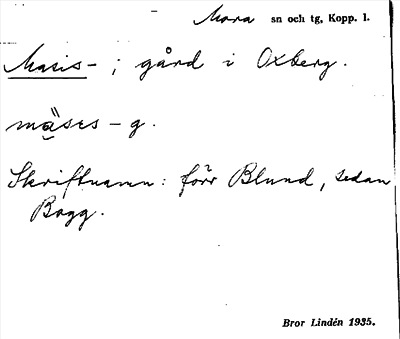 Mora sn och tg, Kopp. l.
Masis- ; gård i Oxberg.
mäses - g.
Skriftnamn: förr Blund, sedan
Bogg.
Bror Lindén 1935.